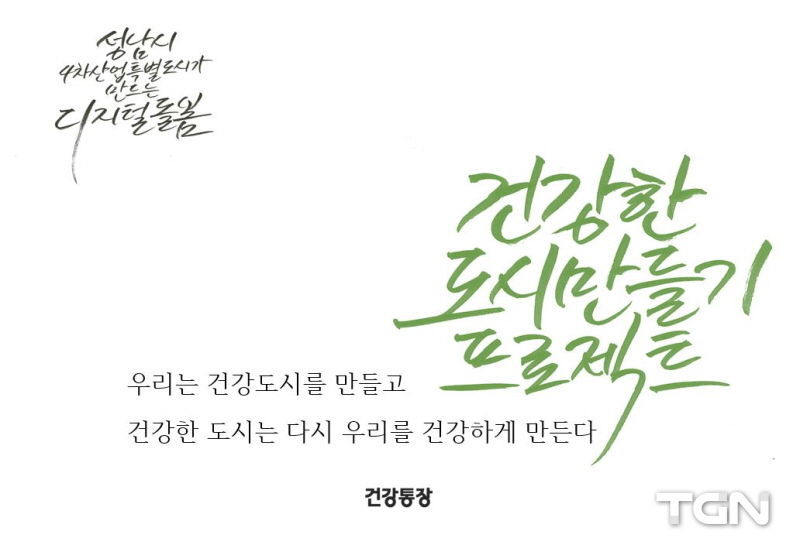 성남시
4차산업특별도시가
만드는
디지털돌봄
건강한
도시만들기
프로젝트
우리는 건강도시를 만들고
건강한 도시는 다시 우리를 건강하게 만든다
건강통장
TGN